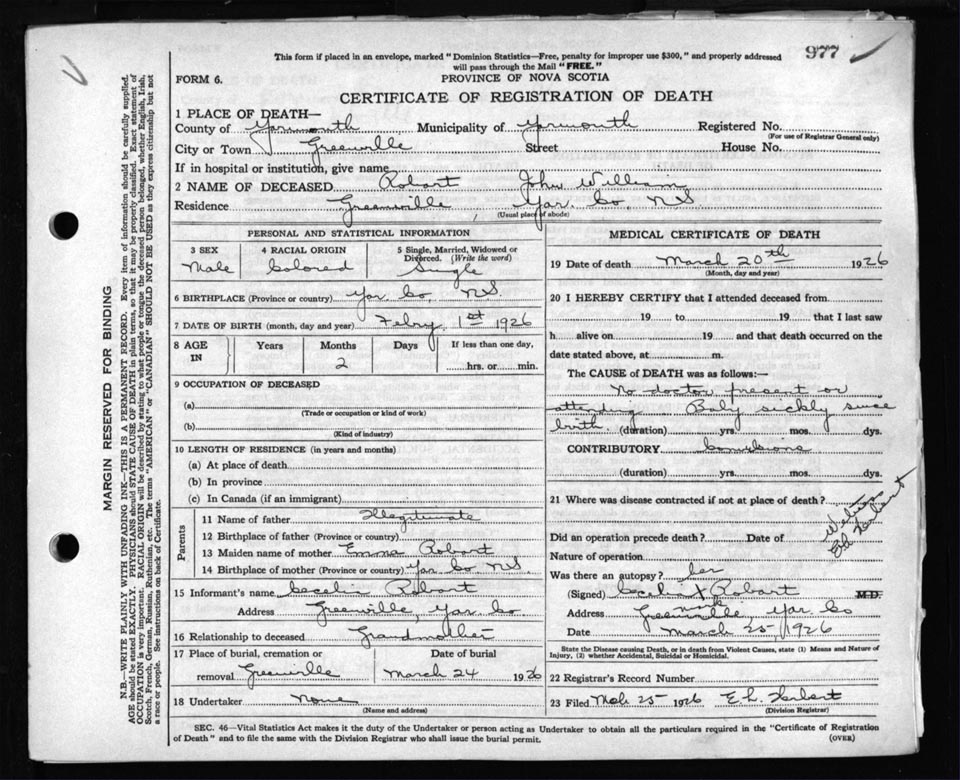 977
This form if placed in an envelope, marked "Dominion Statistics—Free, penalty for improper use $300," and properly addressed
will pass through the Mail "FREE."
FORM 6.
PROVINCE OF NOVA SCOTIA
CERTIFICATE OF REGISTRATION OF DEATH
1 PLACE OF DEATH—
County of Yarmouth Municipality of Yarmouth Registered No.
(For use of Registrar General only)
City or Town Greenville Street House No.
If in hospital or institution, give name
2 NAME OF DECEASED Robart John William
Residence Greenville, Yar. Co, NS
(Usual place of abode)
PERSONAL AND STATISTICAL INFORMATION
3 SEX
Male
4 RACIAL ORIGIN
Colored
5 Single, Married, Widowed or
Divorced. (Write the word)
Single
6 BIRTHPLACE (Province or country) Yar Co NS.
7 DATE OF BIRTH (month, day and year) Febry 1st 1926
8 AGE
IN
Years
Months
2
Days
If less than one day,
hrs. or min.
9 OCCUPATION OF DECEASED
(a)
(Trade or occupation or kind of work)
(b)
(Kind of industry)
10 LENGTH OF RESIDENCE (in years and months)
(a) At place of death
(b) In province
(c) In Canada (if an immigrant)
Parents
11 Name of father Illegitimate
12 Birthplace of father (Province or country)
13 Maiden name of mother Emma Robart
14 Birthplace of mother (Province or country) Yar Co NS.
15 Informant's name Cecelia Robart
Address Greenville, Yar Co
16 Relationship to deceased Grandmother
17 Place of burial, cremation or
removal Greenville
Date of burial
March 24 1926
18 Undertaker None
(Name and address)
MEDICAL CERTIFICATE OF DEATH
19 Date of death March 20th 1926
(Month, day and year)
20 I HEREBY CERTIFY that I attended deceased from
19 to 19 that I last saw
h alive on 19 and that death occurred on the
date stated above, at m.
The CAUSE of DEATH was as follows:—
No doctor present or
attending Baby sickly since
birth. (duration) yrs. mos. dys.
CONTRIBUTORY
(duration) yrs. mos. dys.
21 Where was disease contracted if not at place of death?
Did an operation precede death? Date of
Nature of operation
Was there an autopsy? her
(Signed) Cecelia X Robart M.D.
mark
Address Greenville Yar Co
Date March 25/1926
Witness
Ed Herbert
State the Disease causing Death, or in death from Violent Causes, state (1) Means and Nature of
Injury, (2) whether Accidental, Suicidal or Homicidal.
22 Registrar's Record Number
23 Filed Mch 25 1926
(Division Registrar)
SEC. 46—Vital Statistics Act makes it the duty of the Undertaker or person acting as Undertaker to obtain all the particulars required in the "Certificate of Registration
of Death" and to file the same with the Division Registrar who shall issue the burial permit.
(OVER)
MARGIN RESERVED FOR BINDING
N.B.—WRITE PLAINLY WITH UNFADING INK—THIS IS A PERMANENT RECORD. Every item of information should be carefully supplied.
AGE should be stated EXACTLY. PHYSICIANS should STATE CAUSE OF DEATH in plain terms, so that it may be properly classified. Exact statement of
OCCUPATION is very important. RACIAL ORIGIN will be described by stating to what people or tongue the deceased person belonged, whether English, Irish,
Scotch, French, German, Russian, Ruthenian, etc. The terms "AMERICAN" or "CANADIAN" SHOULD NOT BE USED as they express citizenship but not
a race or people. See instructions on back of Certificate.